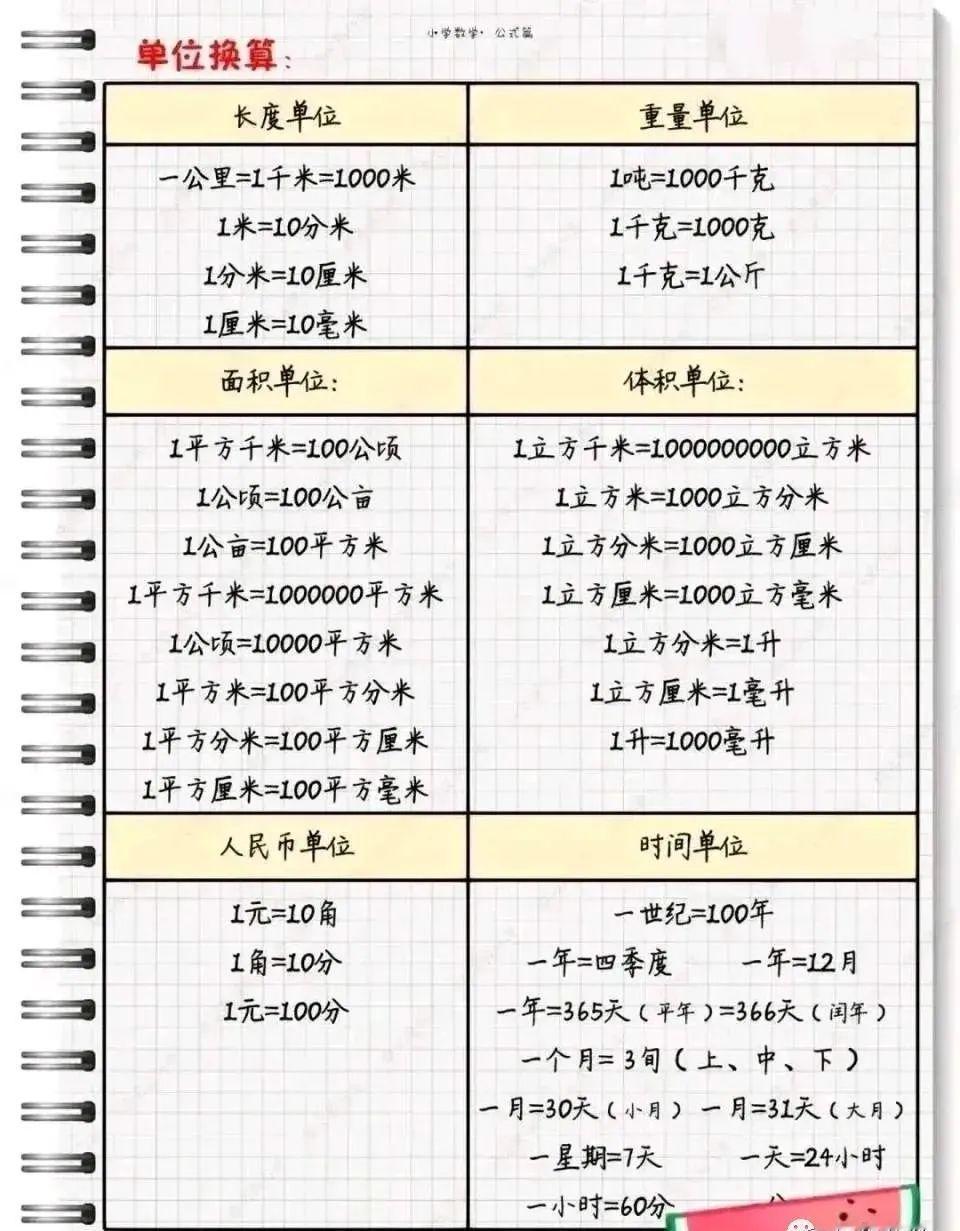 小学数学·公式篇
单位换算:
长度单位
一公里=1千米=1000米
1米=10分米
1分米=10厘米
1厘米=10毫米
重量单位
1吨=1000千克
1千克=1000克
1千克=1公斤
面积单位:
1平方千米=100公顷
1公顷=100公亩
1公亩=100平方米
1平方千米=1000000平方米
1公顷=10000平方米
1平方米=100平方分米
1平方分米=100平方厘米
1平方厘米=100平方毫米
体积单位:
1立方千米=1000000000立方米
1立方米=1000立方分米
1立方分米=1000立方厘米
1立方厘米=1000立方毫米
1立方分米=1升
1立方厘米=1毫升
1升=1000毫升
人民币单位
1元=10角
1角=10分
1元=100分
时间单位
一世纪=100年
一年=四季度 一年=12月
一年=365天(平年)=366天(闰年)
一个月=3旬(上、中、下)
一月=30天(小月) 一月=31天(大月)
一星期=7天 一天=24小时
一小时=60分